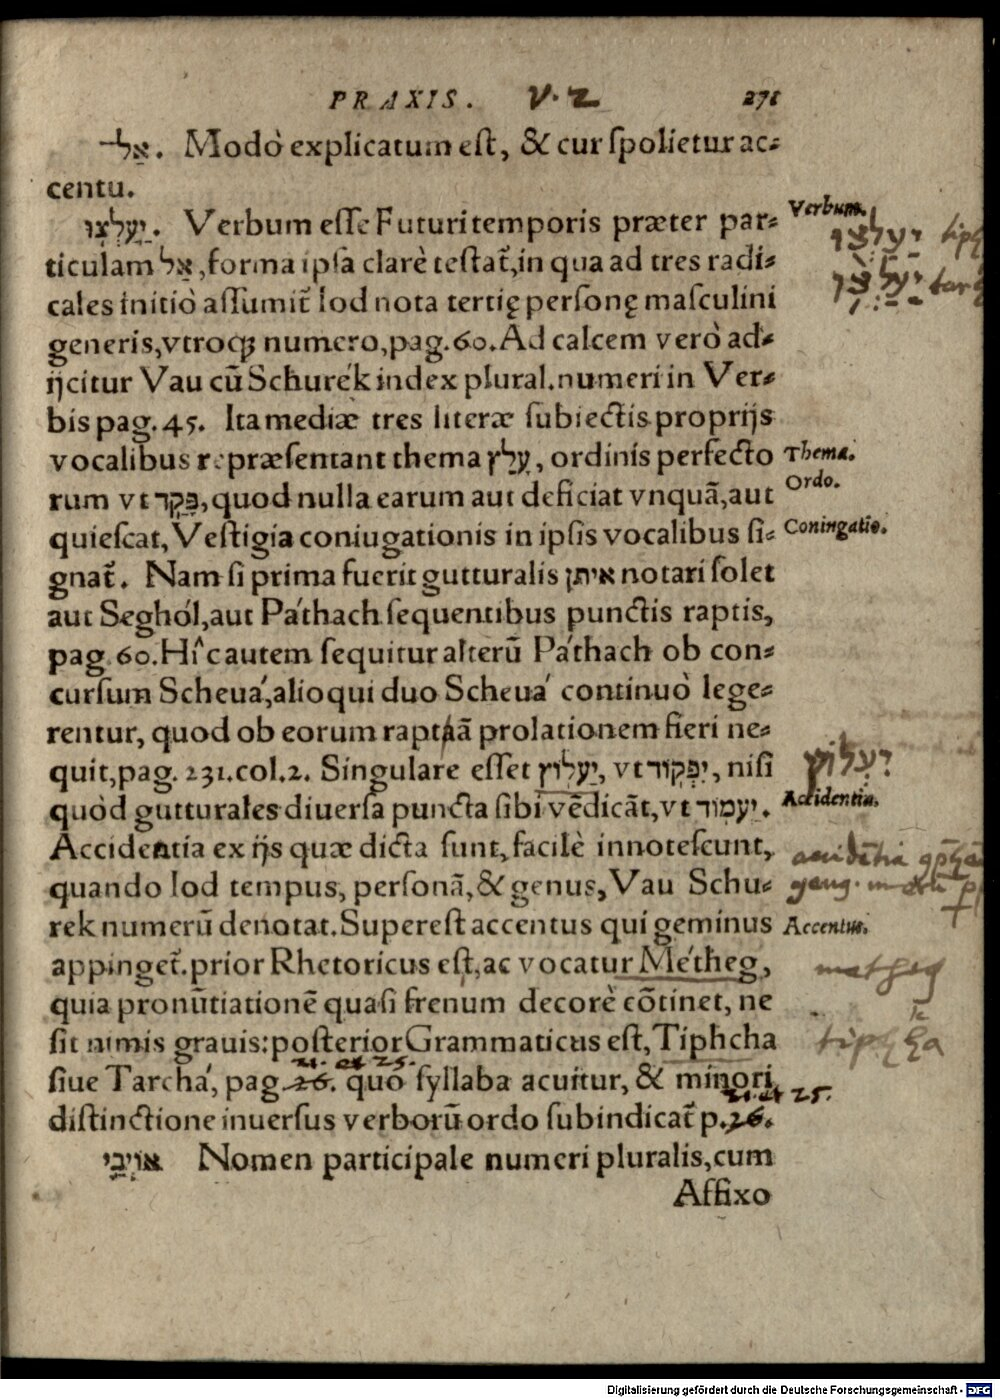 PRAXIS. V. 2 271
אַל־. Modò explicatum est, & cur spolietur ac-
centu.
יַעַלְצוּ. Verbum esse Futuri temporis præter par- Verbum.
ticulam אַל, forma ipsa clarè testat᷑, in qua ad tres radi-
cales initiò assumit᷑ Iod nota tertię personę masculini
generis, vtroqꝫ numero, pag. 60. Ad calcem verò ad-
ijcitur Vau cū Schurék index plural. numeri in Ver-
bis pag. 45. Ita mediæ tres literæ subiectis proprijs
vocalibus repræsentant thema עָלַץ, ordinis perfecto Thema.
rum vt פָּקַד, quod nulla earum aut deficiat vnquā, aut Ordo.
quiescat, Vestigia coniugationis in ipsis vocalibus si- Coniugatio.
gnat᷑. Nam si prima fuerit gutturalis איתן notari solet
aut Seghól, aut Páthach sequentibus punctis raptis,
pag. 60. Hîc autem sequitur alterū Páthach ob con-
cursum Scheuá, alioqui duo Scheuá continuò lege-
rentur, quod ob eorum raptā prolationem fieri ne-
quit, pag. 231. col. 2. Singulare esset יַעְלוֹץ, vt יִפְקוֹד, nisi יַעְלוֹץ
quòd gutturales diuersa puncta sibi vēdicāt, vt יַעְמוֹד. Accidentia.
Accidentia ex ijs quæ dicta sunt, facilè innotescunt,
quando Iod tempus, personā, & genus, Vau Schu-
rek numerū denotat. Superest accentus qui geminus Accentus.
appinget᷑. prior Rhetoricus est, ac vocatur Métheg, metheg
quia pronūtiationē quasi frenum decorè cōtinet, ne
sit nimis grauis: posterior Grammaticus est, Tiphcha
21. et 25.
siue Tarchá, pag. 26. quo syllaba acuitur, & minori
21. et 25.
distinctione inuersus verborū ordo subindicat᷑ p. 26.
אוֹיְבַי Nomen participale numeri pluralis, cum
Affixo
Digitalisierung gefördert durch die Deutsche Forschungsgemeinschaft - DFG